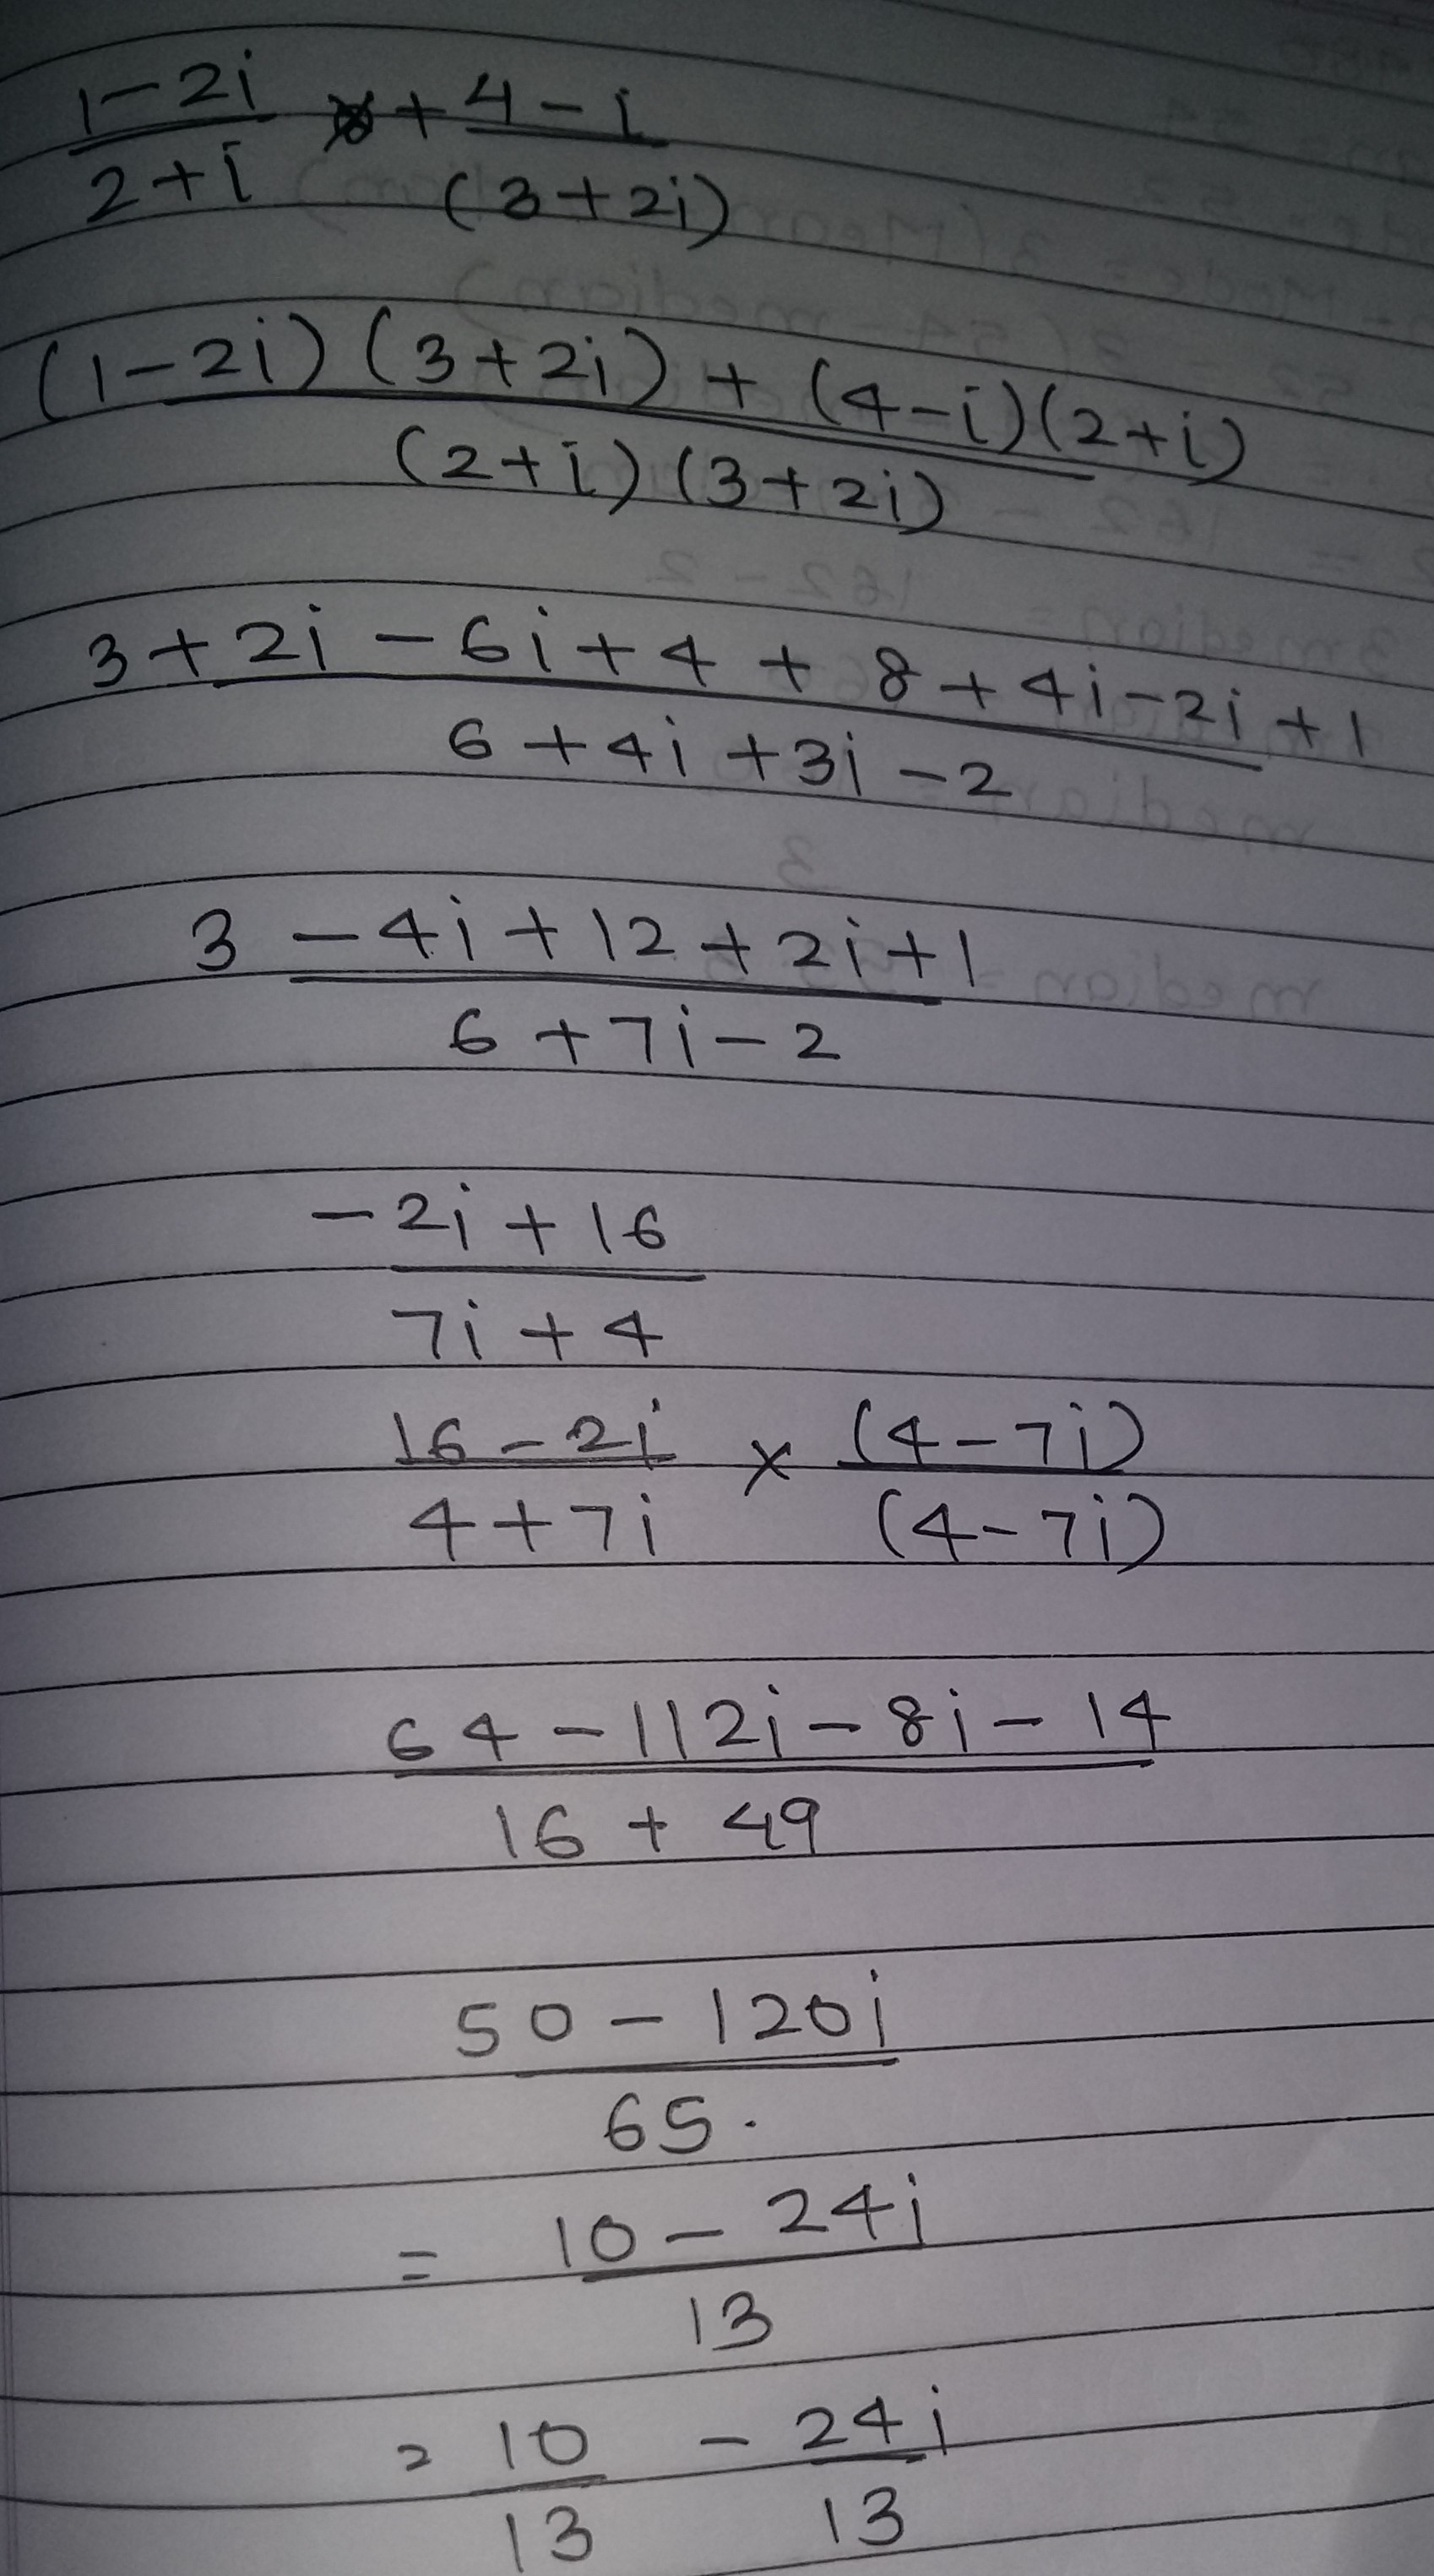 1-2i + 4-i
2+i (3+2i)
(1-2i) (3+2i) + (4-i)(2+i)
(2+i) (3+2i)
3+2i - 6i+4 + 8+4i-2i+1
6+4i+3i-2
3 -4i+12+2i+1
6+7i-2
-2i+16
7i+4
16-2i × (4-7i)
4+7i (4-7i)
64-112i-8i-14
16+49
50-120i
65.
= 10-24i
13
= 10 - 24i
13 13